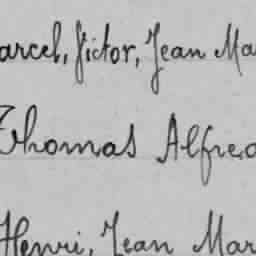 arcel, Victor, Jean Ma
Thomas Alfred
Henri, Jean Mar